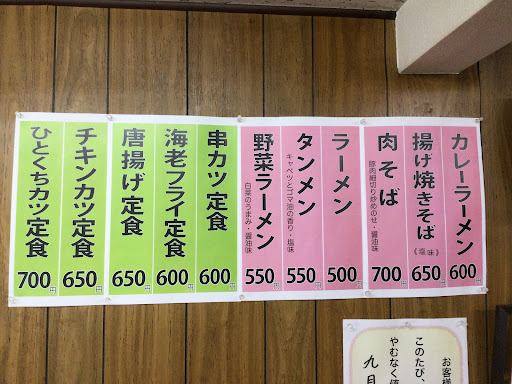 カレーラーメン
600円
揚げ焼きそば
《塩味》
650円
肉そば
豚肉細切り炒めのせ・醤油味
700円
ラーメン
500円
タンメン
キャベツとゴマ油の香り・塩味
550円
野菜ラーメン
白菜のうまみ・醤油味
550円
串カツ定食
600円
海老フライ定食
600円
唐揚げ定食
650円
チキンカツ定食
650円
ひとくちカツ定食
700円
お客様
このたび、
やむなく値
九月